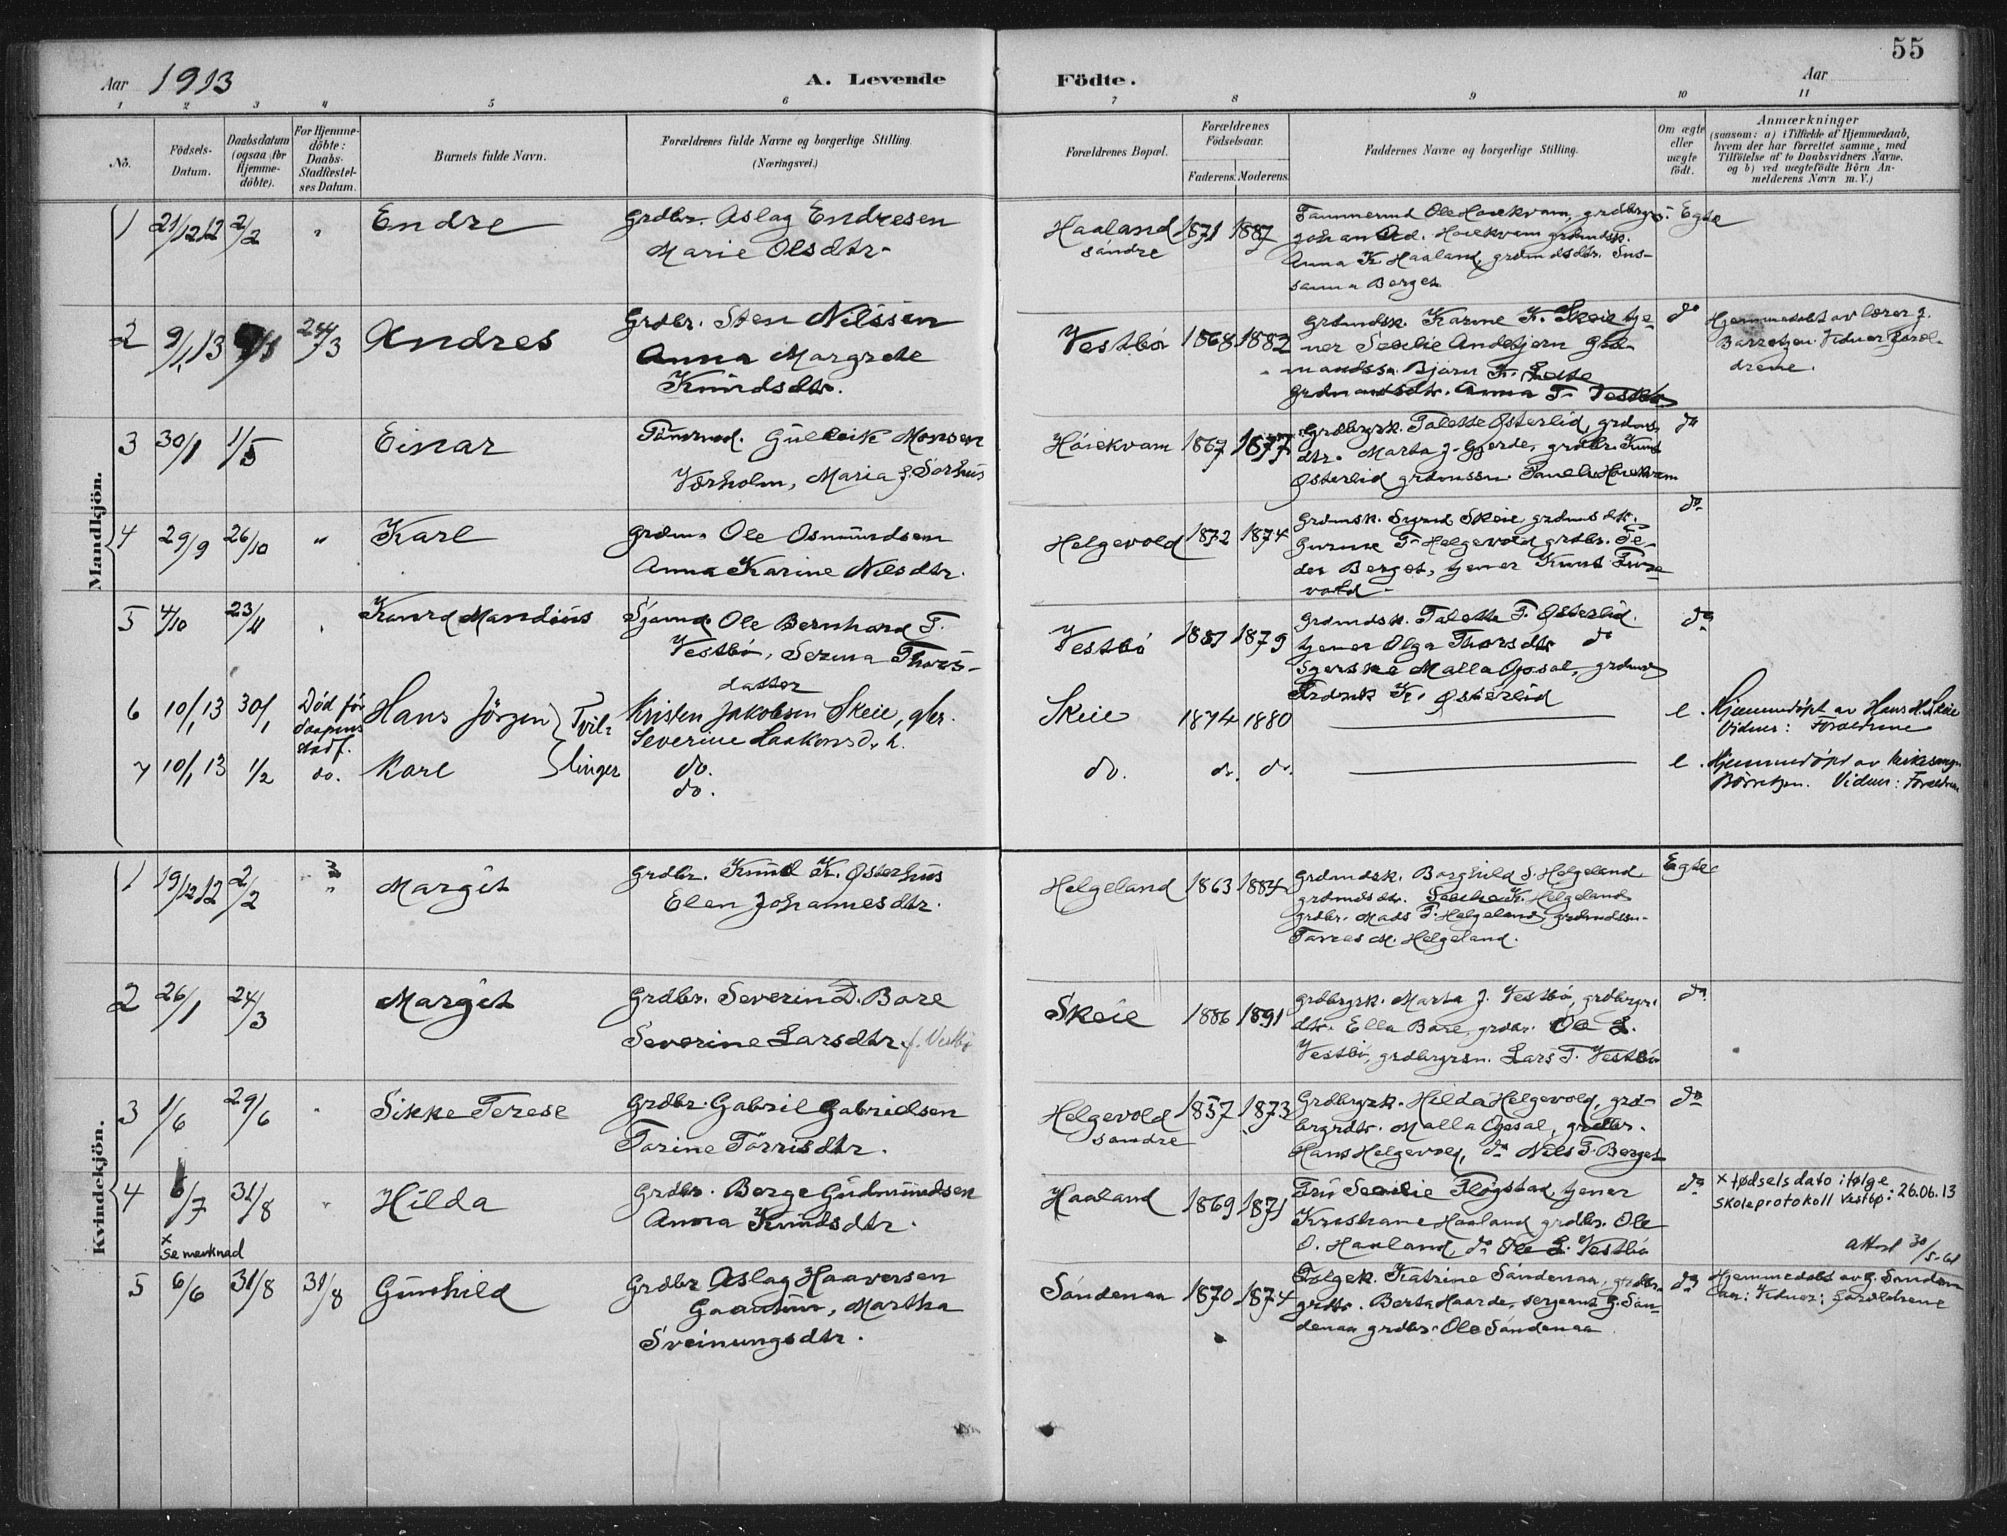 55
Aar 1913 A. Levende Födte. Aar
1 2 3 4 5 6 7 8 9 10 11
No. Födsels-Datum. Daabsdatum (ogsaa for Hjemme-döbte). For Hjemme-döbte: Daabs-Stadfæstel-ses Datum. Barnets fulde Navn. Forældrenes fulde Navne og borgerlige Stilling. (Næringsvei.) Forældrenes Bopæl. Forældrenes Födselsaar. Faderens. Moderens. Faddernes Navne og borgerlige Stilling. Om ægte eller uægte födt. Anmærkninger (saasom: a) i Tilfælde af Hjemmedaab, hvem der har forrettet samme, med Tilföielse af to Daabsvidners Navne, og b) ved uægtefödte Börn An-melderens Navn m. V.)
Mandkjön.
1 21/12 12 2/2 " Endre Grdbr. Aslag Endresen
Marie Olsdtr.
Haaland 1871 1887 Tømmermd Ole Hoiekvam, grdbrgs. Egte
söndre
Anna K. Haaland, grdmdsdtr. Sus-
sanna Berget
2 9/1 13 24/3 Andres Grdbr. Sten Nilssen
Anna Margrete
Knudsdtr.
Vestbö 1868 1882 Grdmdsk. Karine K. Skeie tje-
ner Seselie Andbjern Grd-
mandssn. Bjarn
grdmandsdtr. Anna T. Vestbö
do Hjemmedöbt av lærer J.
Barretzen. Vidner Foræl-
drene.
3 30/1 1/5 Einar Tömrmd. Gulleik Monsen
Værholm, Maria f. Sorhus
Höiekvam 1867 1877 Grdbrgsk. Talette Österlid, grdms-
dtr. Marta J. Gjerde, grdbr. Knut
Österlid grdmssn.
do
4 29/9 26/10 " Karl Grdm. Ole Osmundsen
Anna Karine Nilsdtr.
Helgevold 1872 1874 Grdmsk. Sigrid Skeie, grdmsk.
Gurine T. Helgevold grdbr. Pe-
der Berget, tjener Knut
vold
do
5 4/10 23/11 Konrd Mandius Sjömd. Ole Bernhard T.
Vestbö, Serina Thors-
datter
Vestbö 1881 1879 Grdmdsk. Talette T. Österlid.
tjener Olga Thorsdtr do
Malla Opsal, grdmd
Fredrik K. Österlid
do
6 10/1 13 30/1 Död för daapens stadf. Hans Jörgen } Tvil- Kristen Jakobsen Skeie, gbr.
Severine Haakonsd.h.
Skeie 1874 1880 e. Hjemmedöpt av Hans H. Skeie
Vidner: Forældrene
7 10/1 13 1/2 do. Karl } linger do.
do.
do. do. do. e. Hjemmedöpt av kirkesanger
Börretzen. Vidner: Forældrene
Kvindekjön.
1 19/12 12 2/2 " Margit Grdbr. Knud K. Österhus
Elen Johannesdtr.
Helgeland 1863 1884 Grdmdsk. Borghild S. Helgeland
grdmdsdtr. K. Helgeland
grdbr. Mads T. Helgeland, grdmdssn.
Torres M. Helgeland.
Egte
2 26/1 24/3 Margit Grdbr. Severin D. Bore
Severine Larsdtr. f. Vestbö
Skeie 1886 1891 Grdbrgsk. Marta J. Vestbö, grdbrgr.
dtr. Ella Bore, grdbr. Ole L.
Vestbö, grdbrgrsn. Lars T. Vestbö
do
3 1/6 29/6 Sikke Terese Grdbr. Gabriel Gabrielsen
Torine Torrisdtr.
Helgevold 1857 1873 Grdbrgsk. Hilda Helgevold, grd-
söndre
brgrdtr. Malla Opsal, grdbr.
Hans Helgevold, do Nils T. Berget
do
4 6/7 31/8 Hilda Grdbr. Berge Gudmundsen
Anna Knudsdtr.
x
se merknad
Haaland 1869 1871 Fru Seselie Flögstad, tjener
Kristiane Haaland grdbr. Ole
O. Haaland, do Ole L. Vestbö
do x födselsdato ifølge
skoleprotokoll Vestbø: 26.06.13
attest 30/5-61
5 6/6 31/8 31/8 Gunhild Grdbr Aslag Haaversen
Martha
Sveinungsdtr.
Söndenaa 1870 1874 Folgek. Katrine Söndenaa, grdbr.
grdtr. Berta Haarde, sergeant G. Sön-
denaa grdbr. Ole Söndenaa
do Hjemmedöbt av G. Sönden-
aa: Vidner: Forældrene